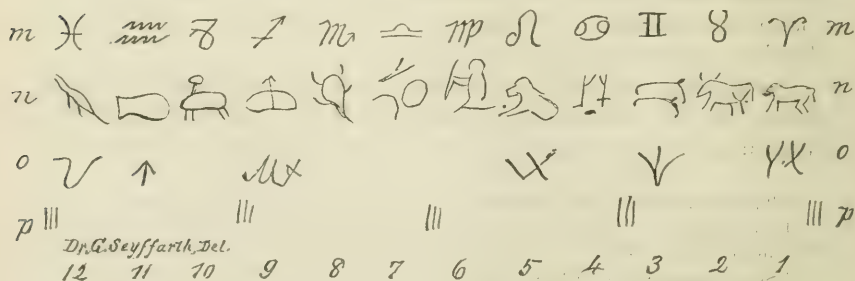 m ♓ ♒ ♑ ♐ ♏ ♎ ♍ ♌ ♋ ♊ ♉ ♈ m
n n
o o
p ||| ||| ||| ||| ||| p
Dr. G. Seyffarth, Del.
12 11 10 9 8 7 6 5 4 3 2 1